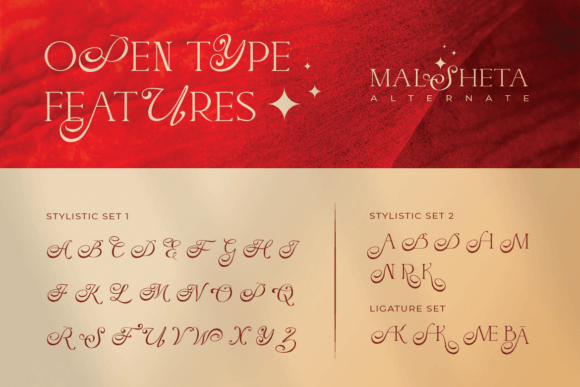 OPEN TYPE
FEATURES
MALSHETA
ALTERNATE
STYLISTIC SET 1
A B C D E F G H I
J K L M N O P Q
R S T U V W X Y Z
STYLISTIC SET 2
A B D H M
N R K
LIGATURE SET
AK